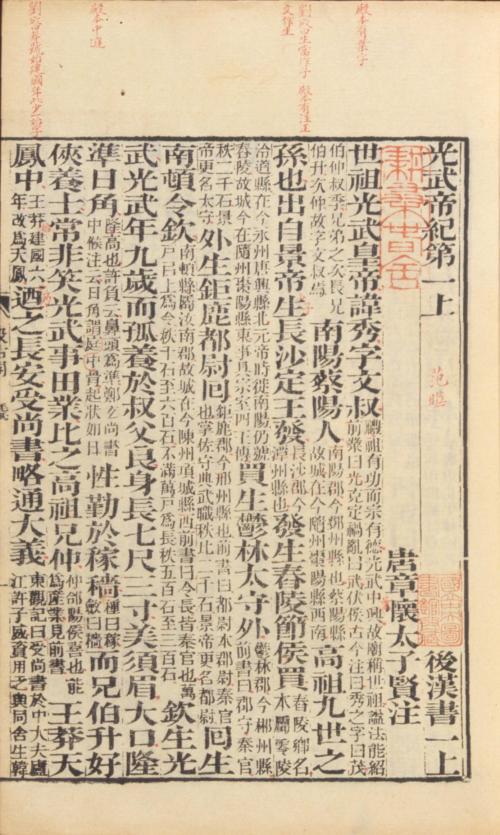 殿本有業字
光武帝紀第一上
後漢書一上
范曄
唐章懷太子賢注
世祖光武皇帝諱秀字文叔
禮祖有功而宗有德光武中興故廟稱世祖諡法能紹
前業曰光克定禍亂曰武伏侯古今注曰秀之字曰茂
伯仲叔季兄弟之次長兄
伯升次仲故字文叔焉
南陽蔡陽人
南陽郡今鄧州縣也蔡陽縣
故城在今隨州棗陽縣西南
高祖九世之
孫也出自景帝生長沙定王發
長沙郡今
潭州縣也
發生舂陵節侯買
舂陵鄉名
本屬零陵
泠道縣在今永州唐興縣北元帝時徙南陽仍號
舂陵故城今在隨州棗陽縣東事具宗室四王傳
買生鬱林太守外
鬱林郡今郴州縣
前書曰郡守秦官
秩二千石景
帝更名太守
外生鉅鹿都尉回
鉅鹿郡今邢州縣也前書曰都尉本郡尉秦官
也掌佐守典武職秩比二千石景帝更名都尉
回生
南頓令欽
南頓縣屬汝南郡故城在今陳州項城縣西前書曰令長皆秦官也萬
戶曰上爲令秩千石至六百石不滿萬戶爲長秩五百石至三百石
欽生光
武光武年九歲而孤養於叔父良身長七尺三寸美須眉大口隆
準日角
隆高也許負云鼻頭爲準鄭玄尚書
中候注云日角謂庭中骨起狀如日
性勤於稼穡
種曰稼
斂曰穡
而兄伯升好
俠養士常非笑光武事田業比之高祖兄仲
仲郃陽侯喜也能
爲產業見前書
王莽天
鳳中
王莽建國六
年改爲天鳳
迺之長安受尚書略通大義
東觀記曰受尚書於中大夫廬
江許子威資用乏與同舍生韓